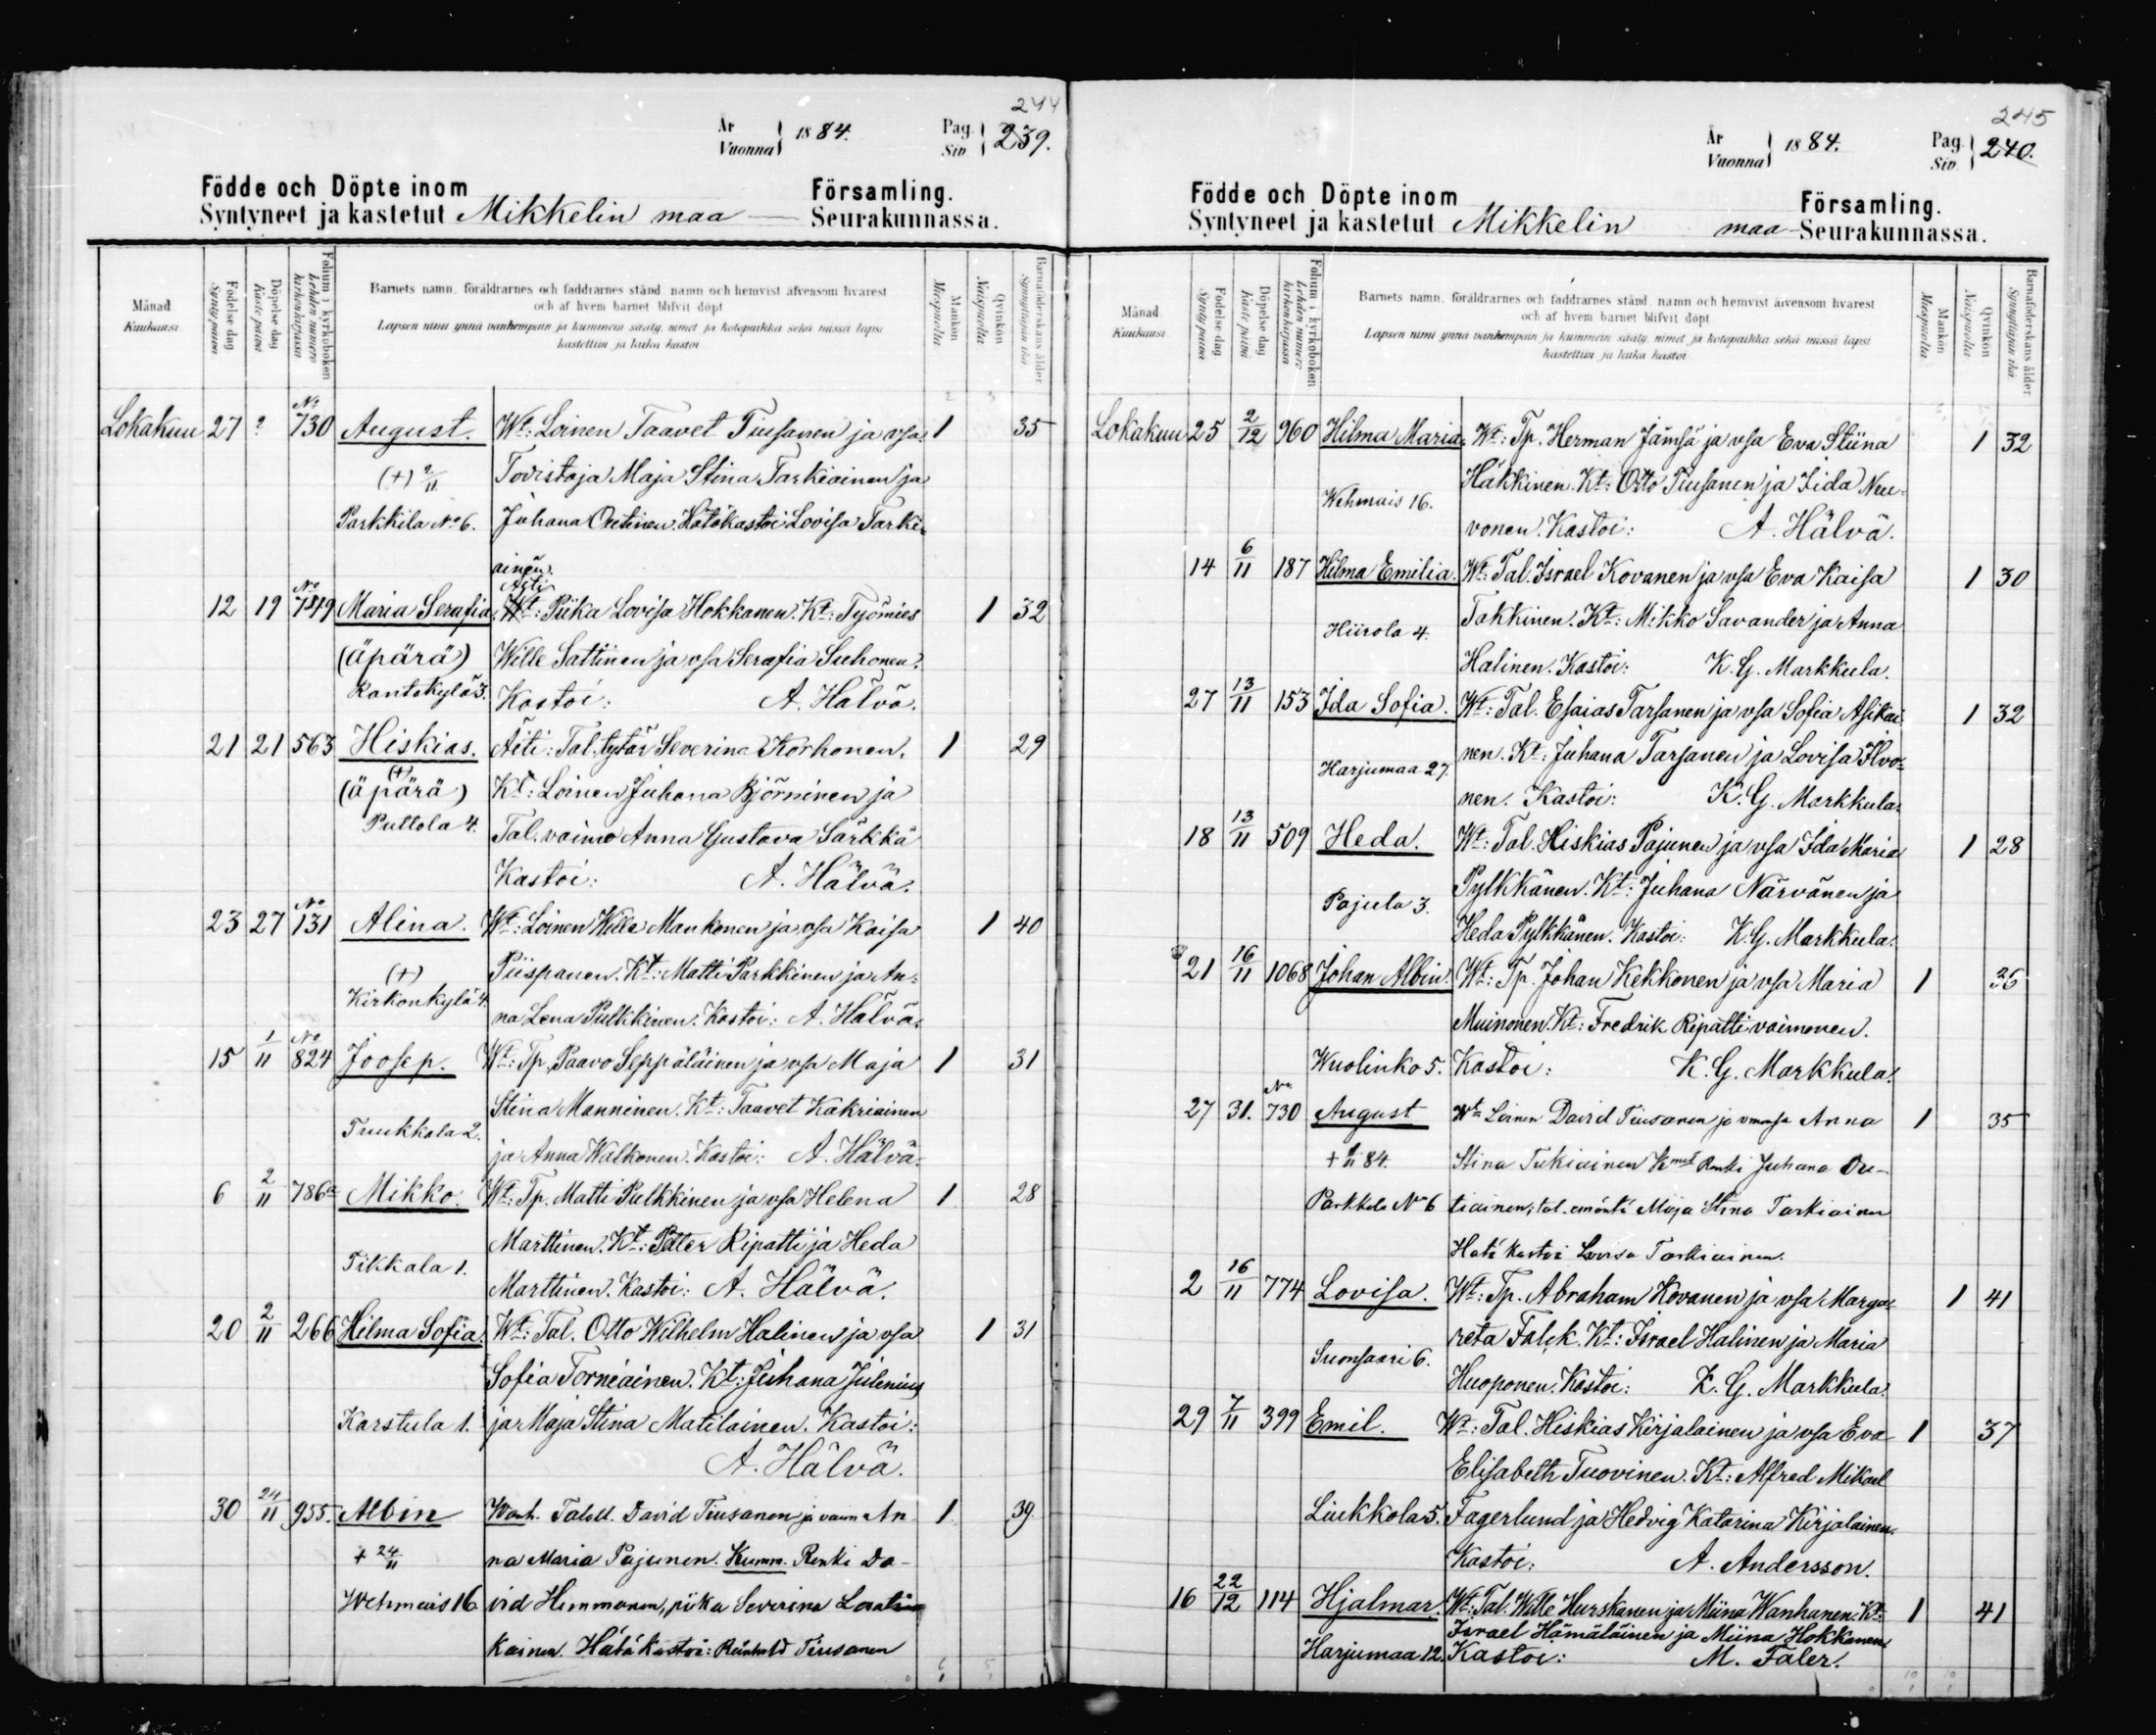 244
År
Vuonna 1884.
Pag.
Siv. 239.
Födde och Döpte inom Församling.
Syntyneet ja kastetut Mikkelin maa Seurakunnassa.
Månad
Kuukausi
Födelse dag
Synty päivä
Döpelse dag
Kaste päivä
Folium i kyrkoboken
Lehden numero
kirkonkirjassa
Barnets namn, föräldrarnes och faddrarnes stånd, namn och hemvist äfvensom hvarest
och af hvem barnet blifvit döpt
Lapsen nimi ynnä vanhempain ja kummein sääty, nimet ja kotopaikka sekä missä lapsi
kastettiin ja kuka kastoi
Mankön
Miespuolia
Qvinkön
Naispuolia
Barnaföderskans ålder
Synnyttäjän ikä
Lokakuu 27 ? No 730 August. Wt: Loinen Taavet Tiusanen ja vsa 1 35
(+) 2/11 Tovistaja Maja Stina Tarkiainen ja
Parkkila No 6. Juhana Outinen. Hätäkastoi Lovisa Tarki-
ainen.
12 19 No 749 Maria Serafia. Äiti Wt: Piika Lovisa Hokkanen. Kt: Työmies 1 32
(äpärä) Wille Sattinen ja vsa Serafia Suhonen.
Rantakylä 3. Kastoi: A. Hälvä.
21 21 563 Hiskias. Äiti: Tal. tytär Severina Korhonen. 1 29
(+)
(äpärä) Kt: Loinen Juhana Björninen ja
Pullola 4. Tal. vaimo Anna Gustava Särkkä
Kastoi: A. Hälvä.
23 27 No 131 Alina. Wt: Loinen Wille Mankonen ja vsa Kaisa 1 40
(+) Piispanen. Kt: Matti Parkkinen ja An-
Kirkonkylä 4. na Lena Pulkkinen. Kastoi: A. Hälvä.
15 1/11 No 824 Joosep. Wt: Tp. Paavo Seppäläinen ja vsa Maja 1 31
Stina Manninen. Kt: Taavet Kakriainen
Tuukkala 2. ja Anna Walkonen. Kastoi: A. Hälvä.
6 2/11 786 Mikko. Wt: Tp. Matti Pulkkinen ja vsa Helena 1 28
Marttinen. Kt: Petter Ripatti ja Heda
Tikkala 1. Marttinen. Kastoi: A. Hälvä.
20 2/11 266 Hilma Sofia. Wt: Tal. Otto Wilhelm Halinen ja vsa 1 31
Sofia Torniainen. Kt: Juhana Julenius
Karstula 1. ja Maja Stina Matilainen. Kastoi:
A. Hälvä.
30 24/11 955. Albin Wanh. Taloll. David Tiusanen ja vaim An 1 39
+ 24/11 na Maria Pajunen. Kumm. Renki Da-
Wehmais 16 vid Himmanen, piika Severina
kainen. Hätä kastoi: Reinhold Tiusanen
245
År
Vuonna 1884.
Pag
Siv. 240.
Födde och Döpte inom Församling.
Syntyneet ja kastetut Mikkelin maa Seurakunnassa.
Månad
Kuukausi
Födelse dag
Synty päivä
Döpelse dag
Kaste päivä
Folium i kyrkoboken
Lehden numero
kirkonkirjassa
Barnets namn, föräldrarnes och faddrarnes stånd, namn och hemvist äfvensom hvarest
och af hvem barnet blifvit döpt
Lapsen nimi ynnä vanhempain ja kummein sääty, nimet ja kotopaikka sekä missä lapsi
kastettiin ja kuka kastoi
Mankön
Miespuolia
Qvinkön
Naispuolia
Barnaföderskans ålder
Synnyttäjän ikä
Lokakuu 25 2/12 960 Hilma Maria. Wt: Tp. Herman Jämsä ja vsa Eva Stiina 1 32
Häkkinen. Kt: Otto Tiusanen ja Iida Neu-
Wehmais 16. vonen. Kastoi: A. Hälvä.
14 6/11 187 Hilma Emilia. Wt: Tal. Israel Kovanen ja vsa Eva Kaisa 1 30
Takkinen. Kt: Mikko Savander ja Anna
Hiirola 4. Halinen. Kastoi: K. G. Markkula.
27 13/11 153 Ida Sofia. Wt: Tal. Esaias Tarsanen ja vsa Sofia Asikai- 1 32
nen. Kt: Juhana Tarsanen ja Lovisa Ilvo-
Harjumaa 27. nen. Kastoi: K. G. Markkula.
18 13/11 509 Heda. Wt: Tal. Hiskias Pajunen ja vsa Ida Maria 1 28
Pylkkänen. Kt: Juhana Närvänen ja
Pajula 3. Heda Pylkkänen. Kastoi: K. G. Markkula.
21 16/11 1068 Johan Albin. Wt: Tp. Johan Kekkonen ja vsa Maria 1 36
Muinonen. Kt: Fredrik Ripatti vaimonen.
Wuolinko 5. Kastoi: K. G. Markkula.
27 31. No 730 August Wt Loinen David Tiusanen ja vmonsa Anna 1 35
+ 2/11 84. Stina Tukiainen Kmit Renki Juhana Ou-
Parkkila No 6 tiainen, tal. emäntä Maja Stina Tarkiainen
Hätä kastoi Lovisa Tarkiainen.
2 16/11 774 Lovisa. Wt: Tp. Abraham Kovanen ja vsa Marga- 1 41
reta Falck. Kt: Israel Halinen ja Maria
Suonsaari 6. Huoponen. Kastoi: K. G. Markkula.
29 7/11 399 Emil. Wt: Tal. Hiskias Kirjalainen ja vsa Eva 1 37
Elisabeth Tuovinen. Kt: Alfred Mikael
Liukkola 5. Fagerlund ja Hedvig Katarina Kirjalainen.
Kastoi: A. Andersson.
16 22/12 114 Hjalmar. Wt: Tal. Wille Hurskanen ja Miina Wanhanen. Kt: 1 41
Israel Hämäläinen ja Miina Hokkanen.
Harjumaa 12. Kastoi: M. Faler.